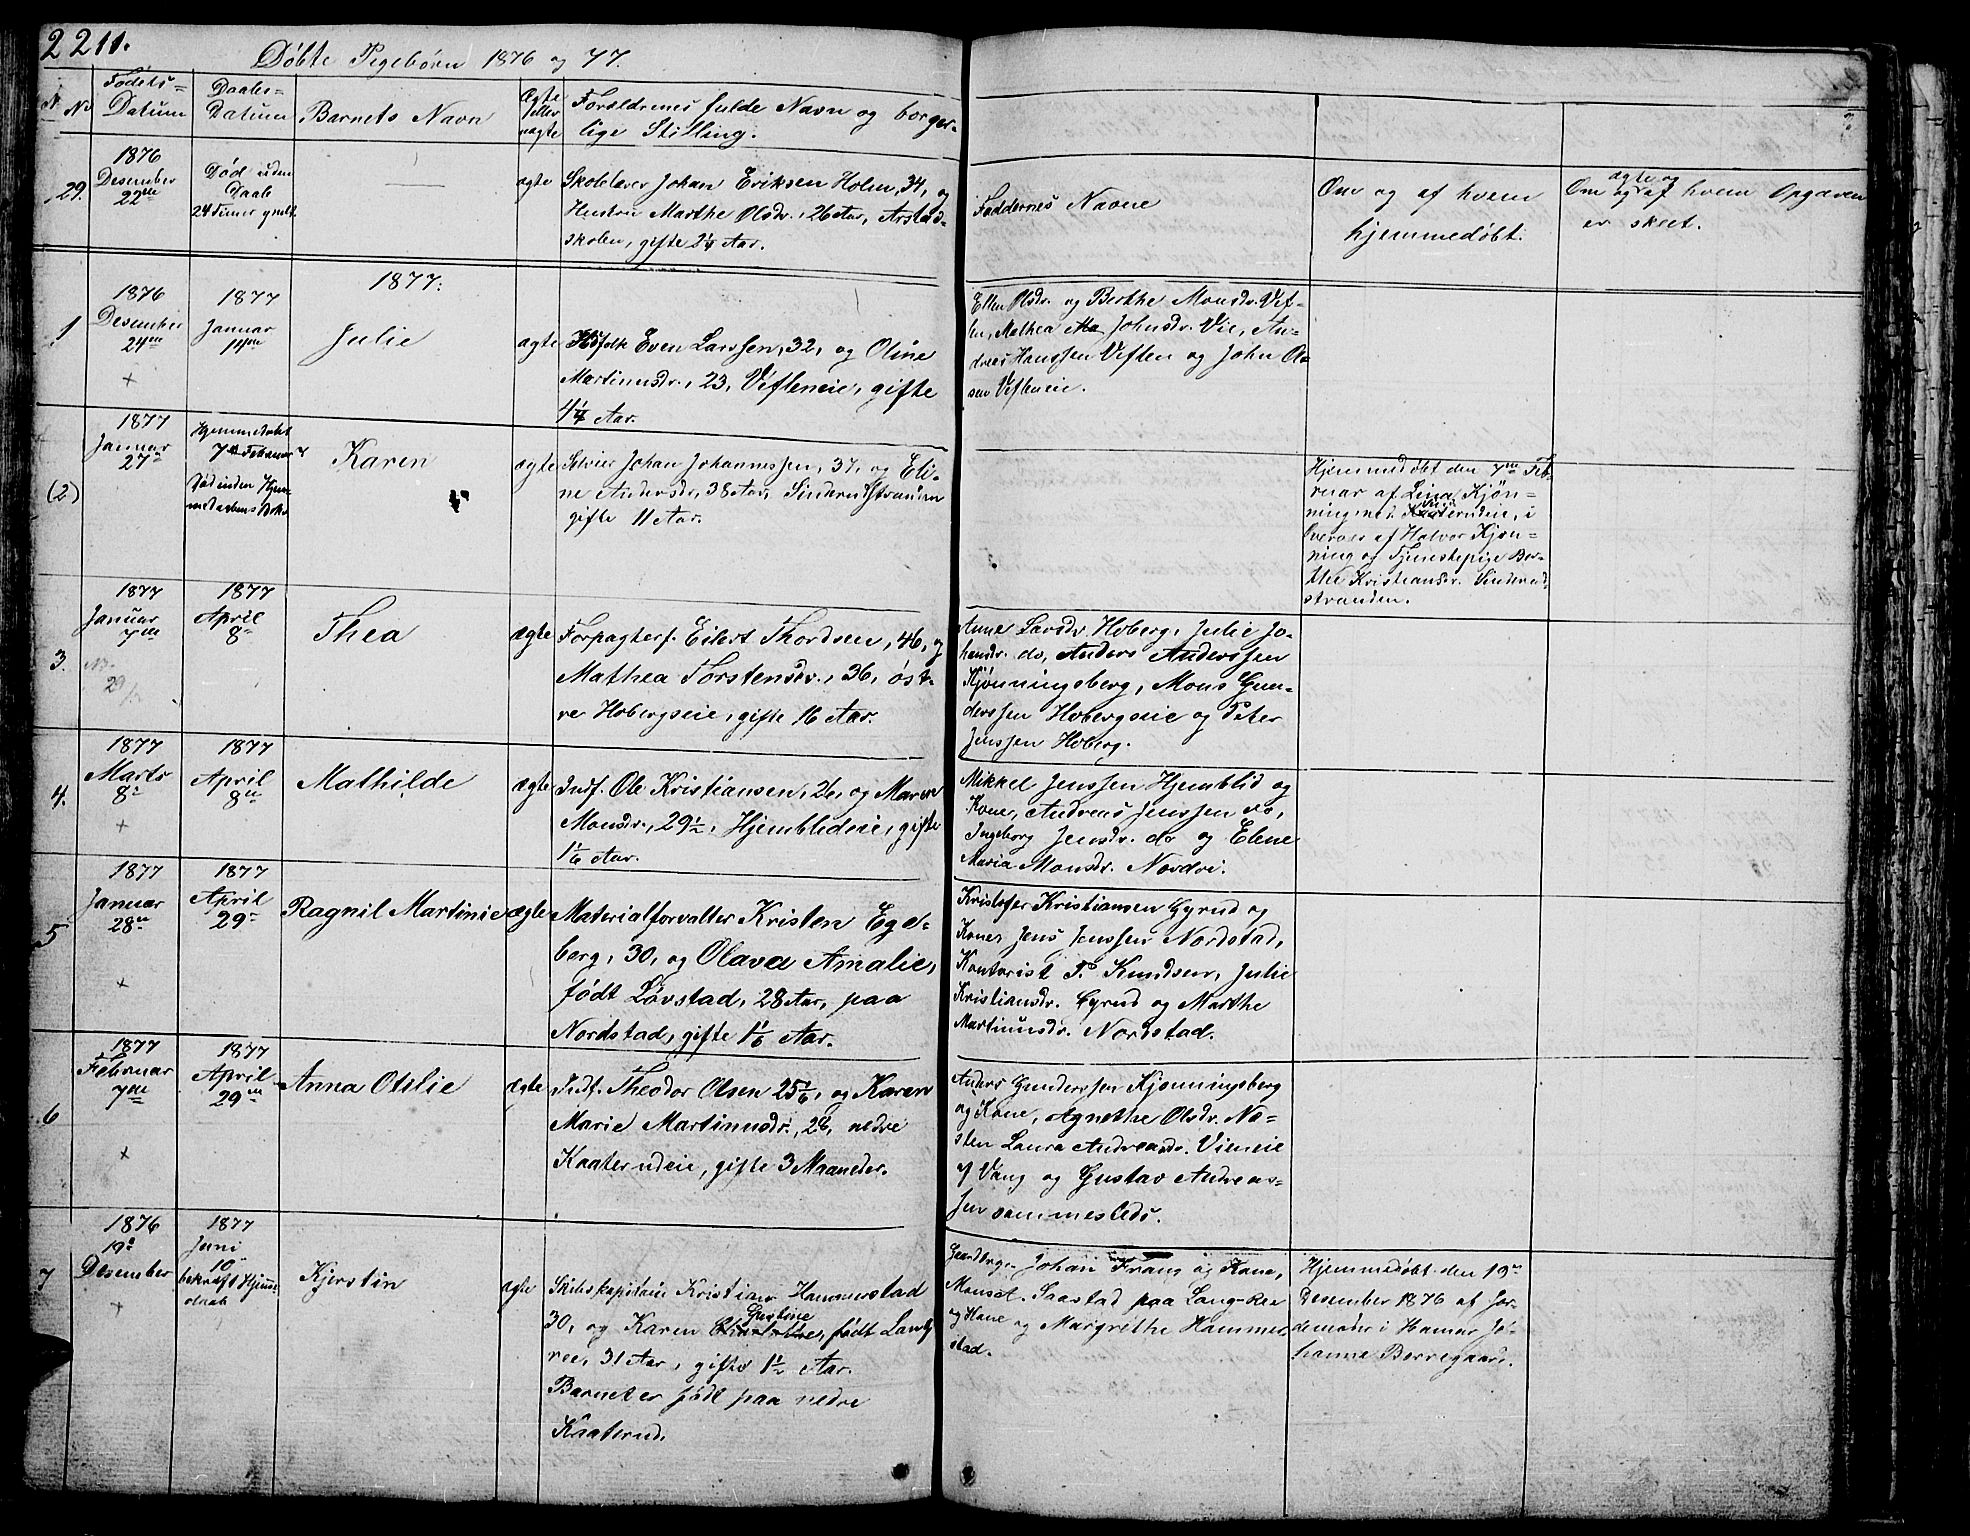 2211.
Døbte Pigebørn 1876 og 77.
No
Fødsels=
Datum
Daabs=
Datum
Barnets Navn
Ægte
eller
uægte
Forældrenes fulde Navn og borger-
lige Stilling.
Faddernes Navne
Om og af hvem
hjemmedøbt.
Om ægte og
og af hvem Opgaven
er skeet.
29.
1876
Desember
22de
Død uden
Daab
24 Timer gmlt
ægte
Skolelærer Johan Eriksen Holm, 34, og
Hustru Marthe Olsdr., 26 Aar, Arstad-
skolen, gifte 2¼ Aar.
1877.
1
1876
Desember
24de
+
1877
Januar
14de
Julie
ægte
Husfolk Even Larssen, 32, og Oline
Martinusdr., 23, Vifleneie, gifte
4¼ Aar.
Ellen Olsdr. og Berthe Monsdr. Vif-
len, Mathea Johnsdr. Vie, An-
dreas Hanssen Viflen og John Ol-
sen Vifleneie.
(2)
1877
Januar
27
Hjemmedøbt
7de Februar
Død inden Hjem-
medaabens Bekr.
Karen
ægte
Selveier Johan Johannessen, 37, og Eli-
ne Andersdr., 38 Aar, Sinderudstranden
gifte 11 Aar.
Hjemmedøbt den 7de Feb-
ruar af Lina Kjøn-
ning, nedre Kaaterudeie, i
Overvær af Halvor Kjøn-
ning og Tjenestepige Ber-
the Kristiansdr. Sinderud-
stranden.
3.
1877
Januar
7de
1877
April
8
Thea
ægte
Forpagterf. Eilert Thordsen, 46, og
Mathea Torstensdr., 36, øst-
re Hobergseie, gifte 16 Aar.
Anne Larsdr. Hoberg, Julie Jo-
hansdr. do, Anders Anderssen
Kjønningsberg, Mons Gun-
derssen Hobergseie og Peter
Jenssen Hoberg.
4.
1877
Marts
8
+
1877
April
8de
Mathilde
ægte
Indf. Ole Kristiansen, 26, og Maren
Monsdr., 29½, Hjemblideie, gifte
1⅙ Aar.
Mikkel Jenssen Hjemblid og
Kone, Andreas Jenssen do,
Ingeborg Jensdr. do og Elene
Maria Monsdr. Nordvi.
5
1877
Januar
28de
+
1877
April
29
Ragnil Martinie
ægte
Materialforvalter Kristen Ege-
berg, 30, og Olava Amalie,
født Løvstad, 28 Aar, paa
Nordstad, gifte 1⅙ Aar.
Kristofer Kristiansen Gyrud og
Kone, Jens Jenssen Nordstad,
Kontorist P. Knudsen, Julie
Kristiansdr. Gyrud og Marthe
Martinusdr. Nordstad.
6
1877
Februar
7de
+
1877
April
29de
Anna Otilie
ægte
Indf. Theodor Olsen 25⅙, og Karen
Marie Martinusdr., 28, nedre
Kaaterudeie, gifte 3 Maaneder.
Anders Gunderssen Kjønningsberg
og Kone, Agnethe Olsdr. Næ-
slen Laura Andreasdr. Vieneie
i Vang og Gustav Andreas-
sen sammesteds.
7
1876
19de
Desember
+
1877
Juni
10
bekræft Hjemme-
daab
Kjerstin
ægte
Skibskapitain Kristian Hammerstad
30, og Karen Gustine, født Lang-
ree, 31 Aar, gifte 1½ Aar.
Barnet er født paa nedre
Kaaterud.
Gaardbrg. Johan Frang og Kone,
Saastad paa Lang-Ree
og Kone og Margrethe Hammer-
stad.
Hjemmedøbt den 19de
Desember 1876 af Jor-
demoder i Hamar Jo-
hanna Borregaard.